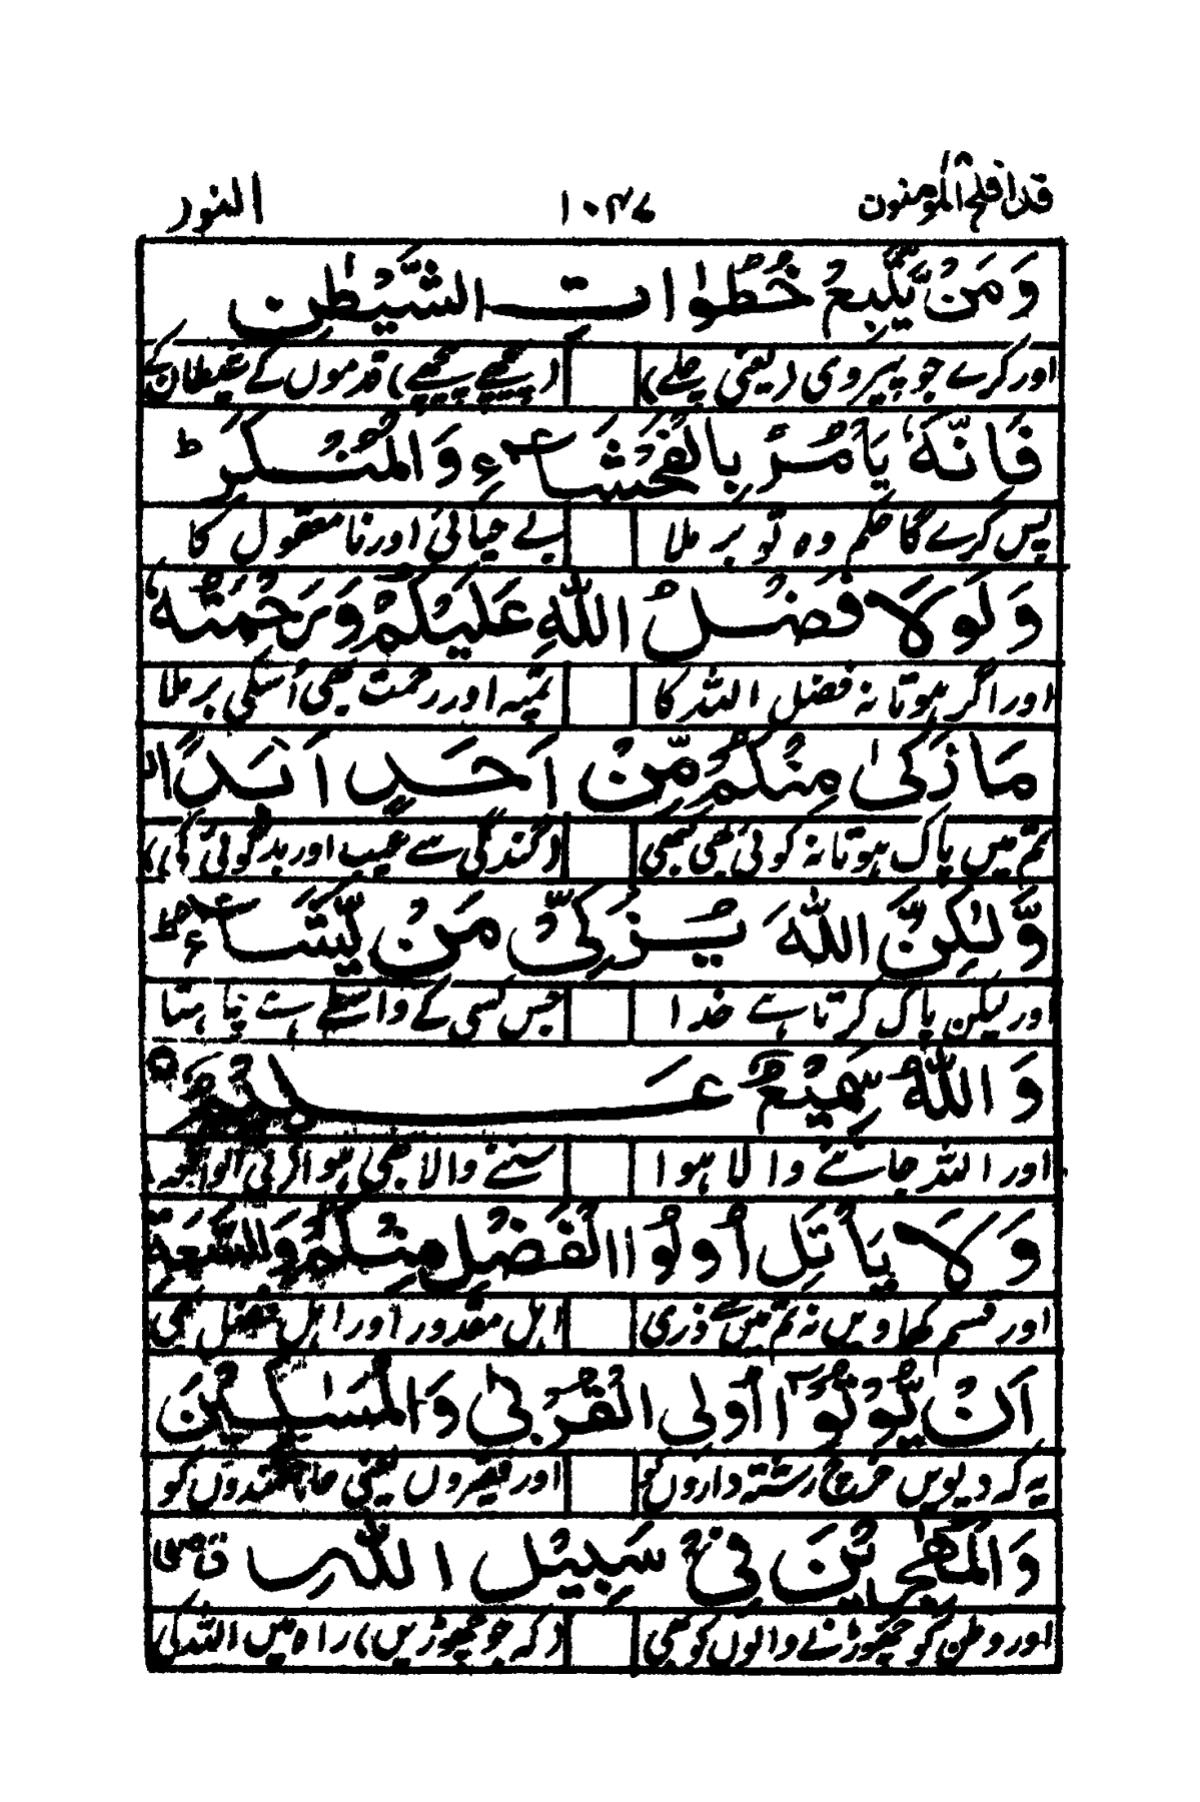 قد افلح المؤمنون ۱۰۴۷ النور
وَمَنْ يَّتَّبِعْ خُطُوٰاتِ الشَّيْطٰنِ
اور کرے جو پیروی (یعنی چلے) (پیچھے پیچھے) قدموں کے شیطان کے
فَاِنَّهٗ يَاْمُرُ بِالْفَحْشَآءِ وَالْمُنْكَرِ ؕ
پس کرے گا حکم وہ تو بر ملا بے حیائی اور نا معقول کا
وَلَوْلَا فَضْلُ اللّٰهِ عَلَيْكُمْ وَرَحْمَتُهٗ
اور اگر ہوتا نہ فضل اللہ کا تمپہ اور رحمت بھی اُسکی بر ملا
مَا زَكٰى مِنْكُمْ مِّنْ اَحَدٍ اَبَدًا ۙ
تم میں پاک ہوتا نہ کوئی بھی کبھی (گندگی سے عیب اور بد گوئی کی)
وَّلٰكِنَّ اللّٰهَ يُزَكِّىْ مَنْ يَّشَآءُ ؕ
اور لیکن پاک کرتا ہے خدا جس کسی کے واسطے ہے چاہتا
وَاللّٰهُ سَمِيْعٌ عَلِيْمٌ ○
اور اللہ جاننے والا ہوا سننے والا بھی ہوا کرتی
وَلَا يَاْتَلِ اُولُوا الْفَضْلِ مِنْكُمْ وَالسَّعَةِ
اور قسم کھاویں نہ تم میں سے ذری اہل مقدور اور اہل فضل بھی
اَنْ يُّؤْتُوْۤا اُولِى الْقُرْبٰى وَالْمَسٰكِيْنَ
یہ کہ دیویں خرچ رشتہ داروں کو اور فقیروں یعنی حاجتمندوں کو
وَالْمُهٰجِرِيْنَ فِىْ سَبِيْلِ اللّٰهِ ۖ
اور وطن کو چھوڑنے والوں کو بھی (کہ جو چھوڑیں) راہ میں اللہ کی